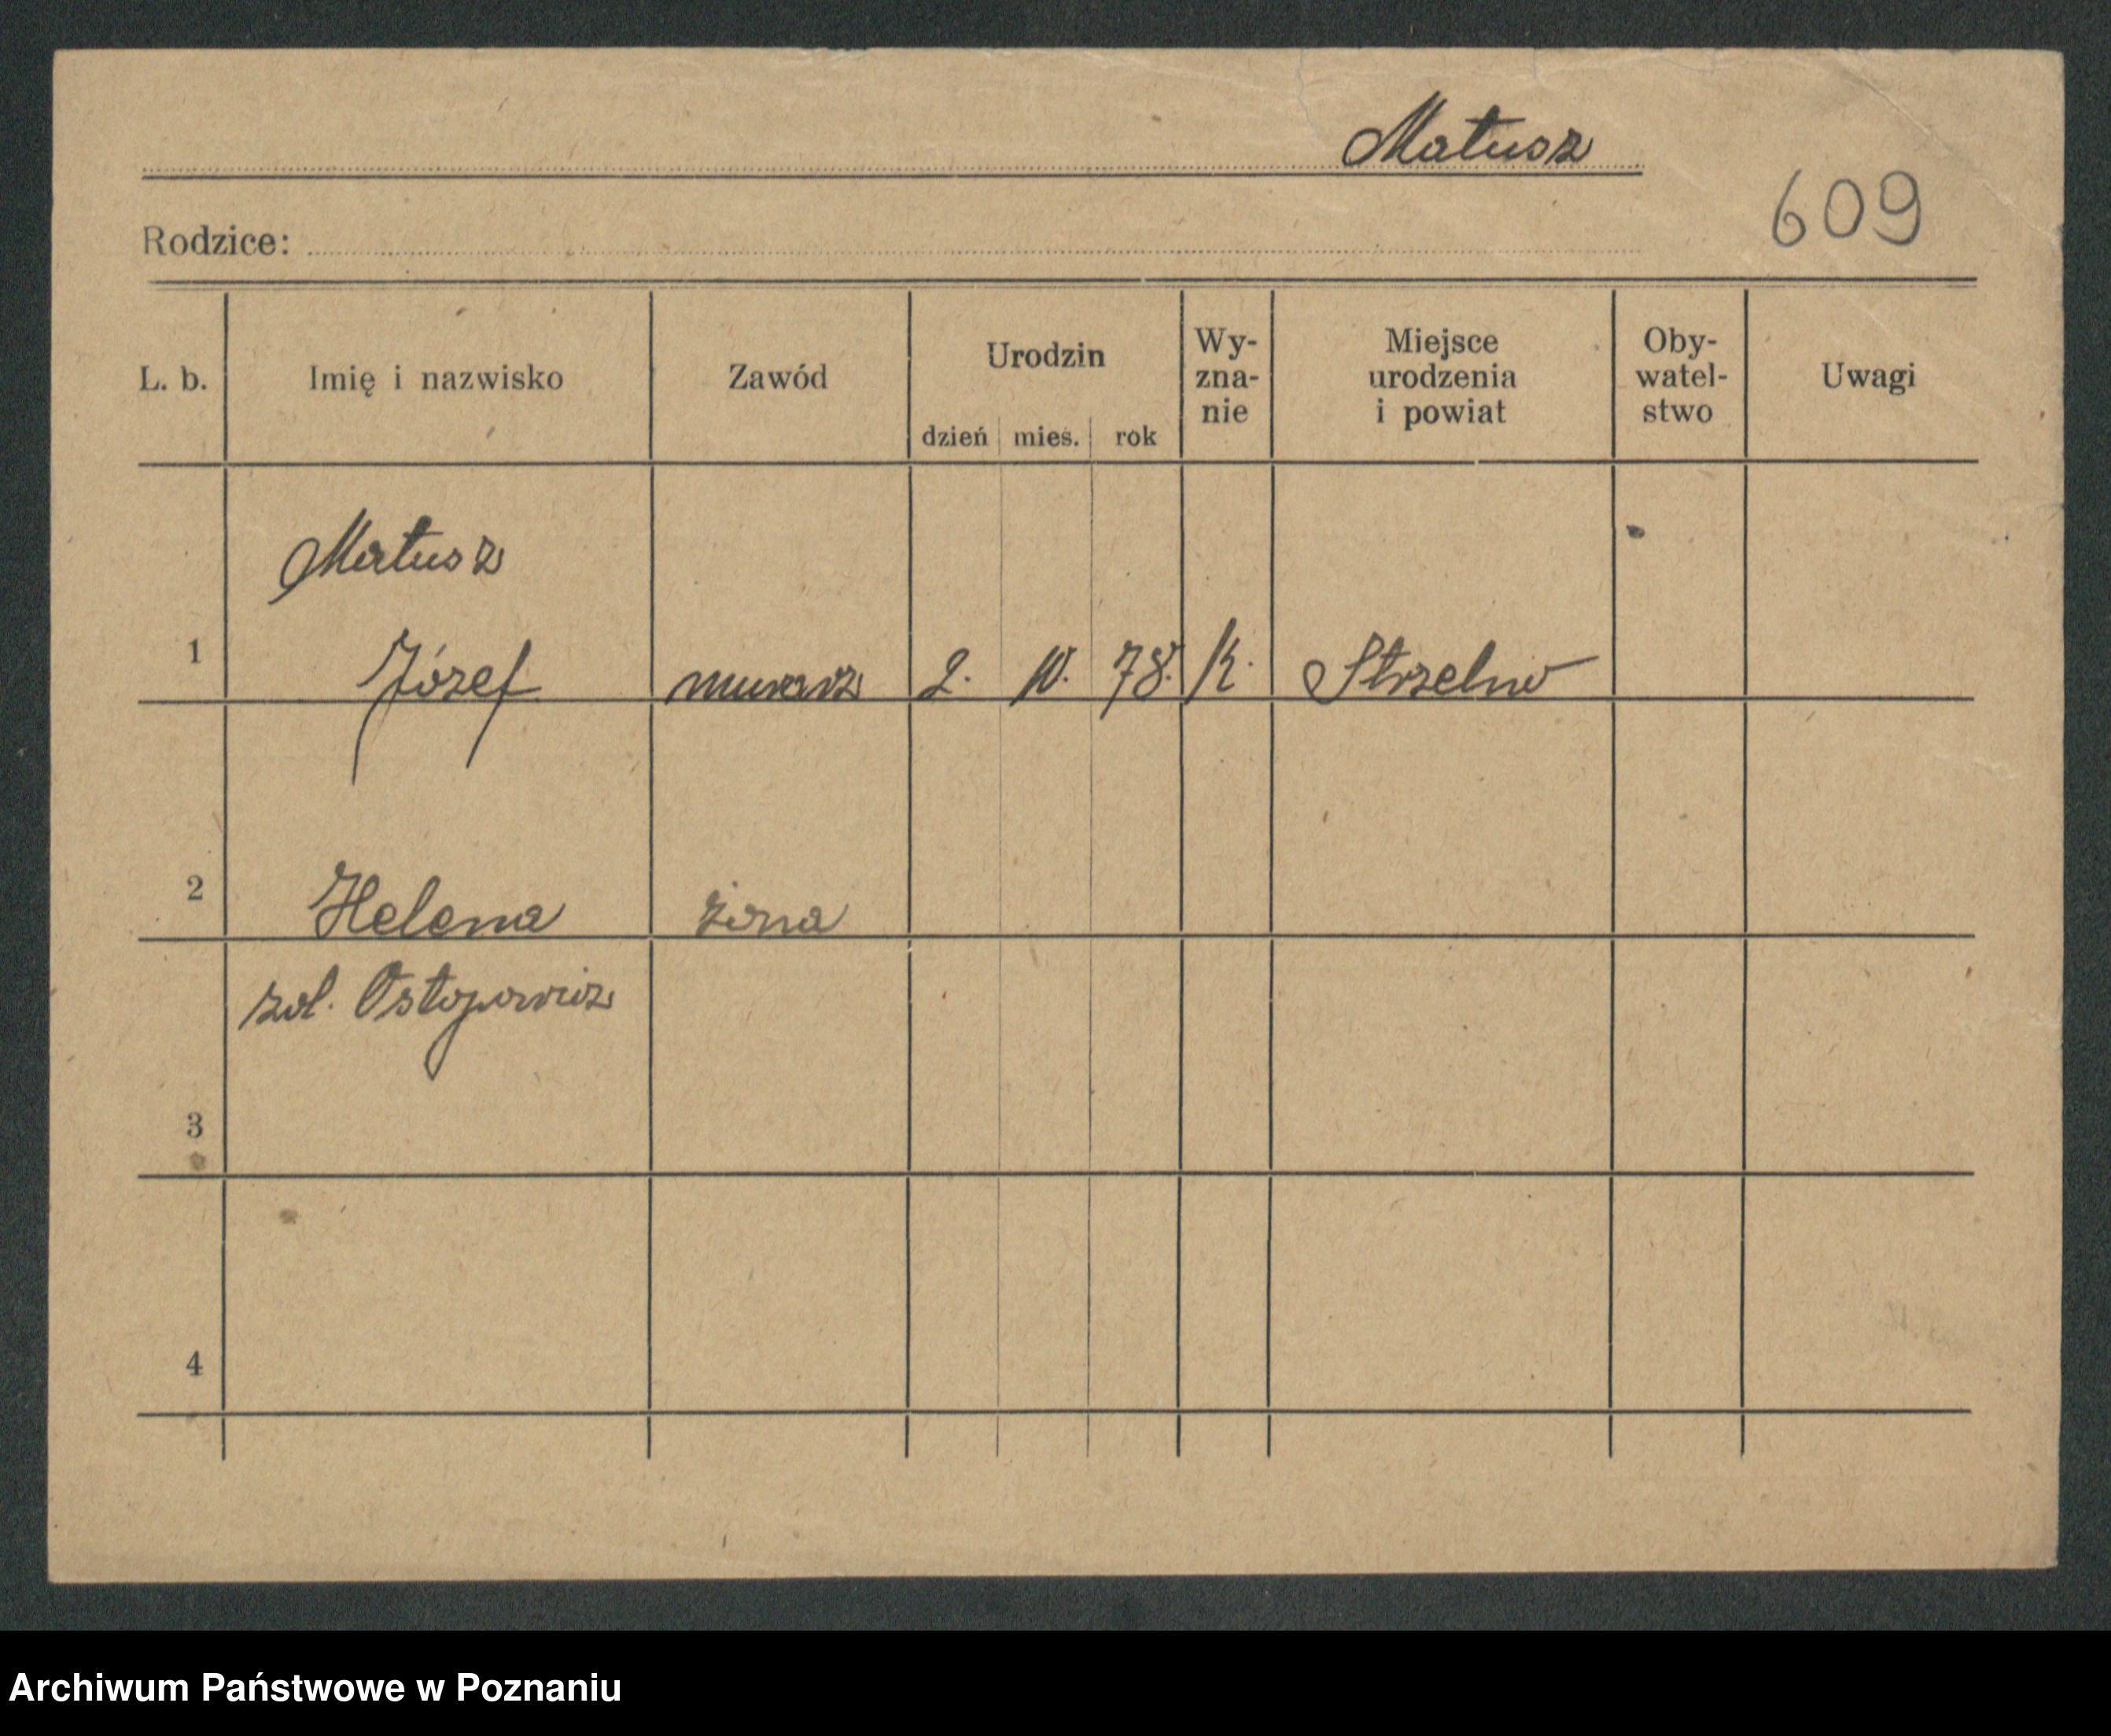 Matusz
609
Rodzice:
L. b. Imię i nazwisko Zawód Urodzin dzień mies. rok Wy-zna-nie Miejsce urodzenia i powiat Oby-watel-stwo Uwagi
Matusz
1 Józef murarz 2. 10. 78. k. Strzelno
2 Helena żona
zol. Ostopowicz
3
4
Archiwum Państwowe w Poznaniu